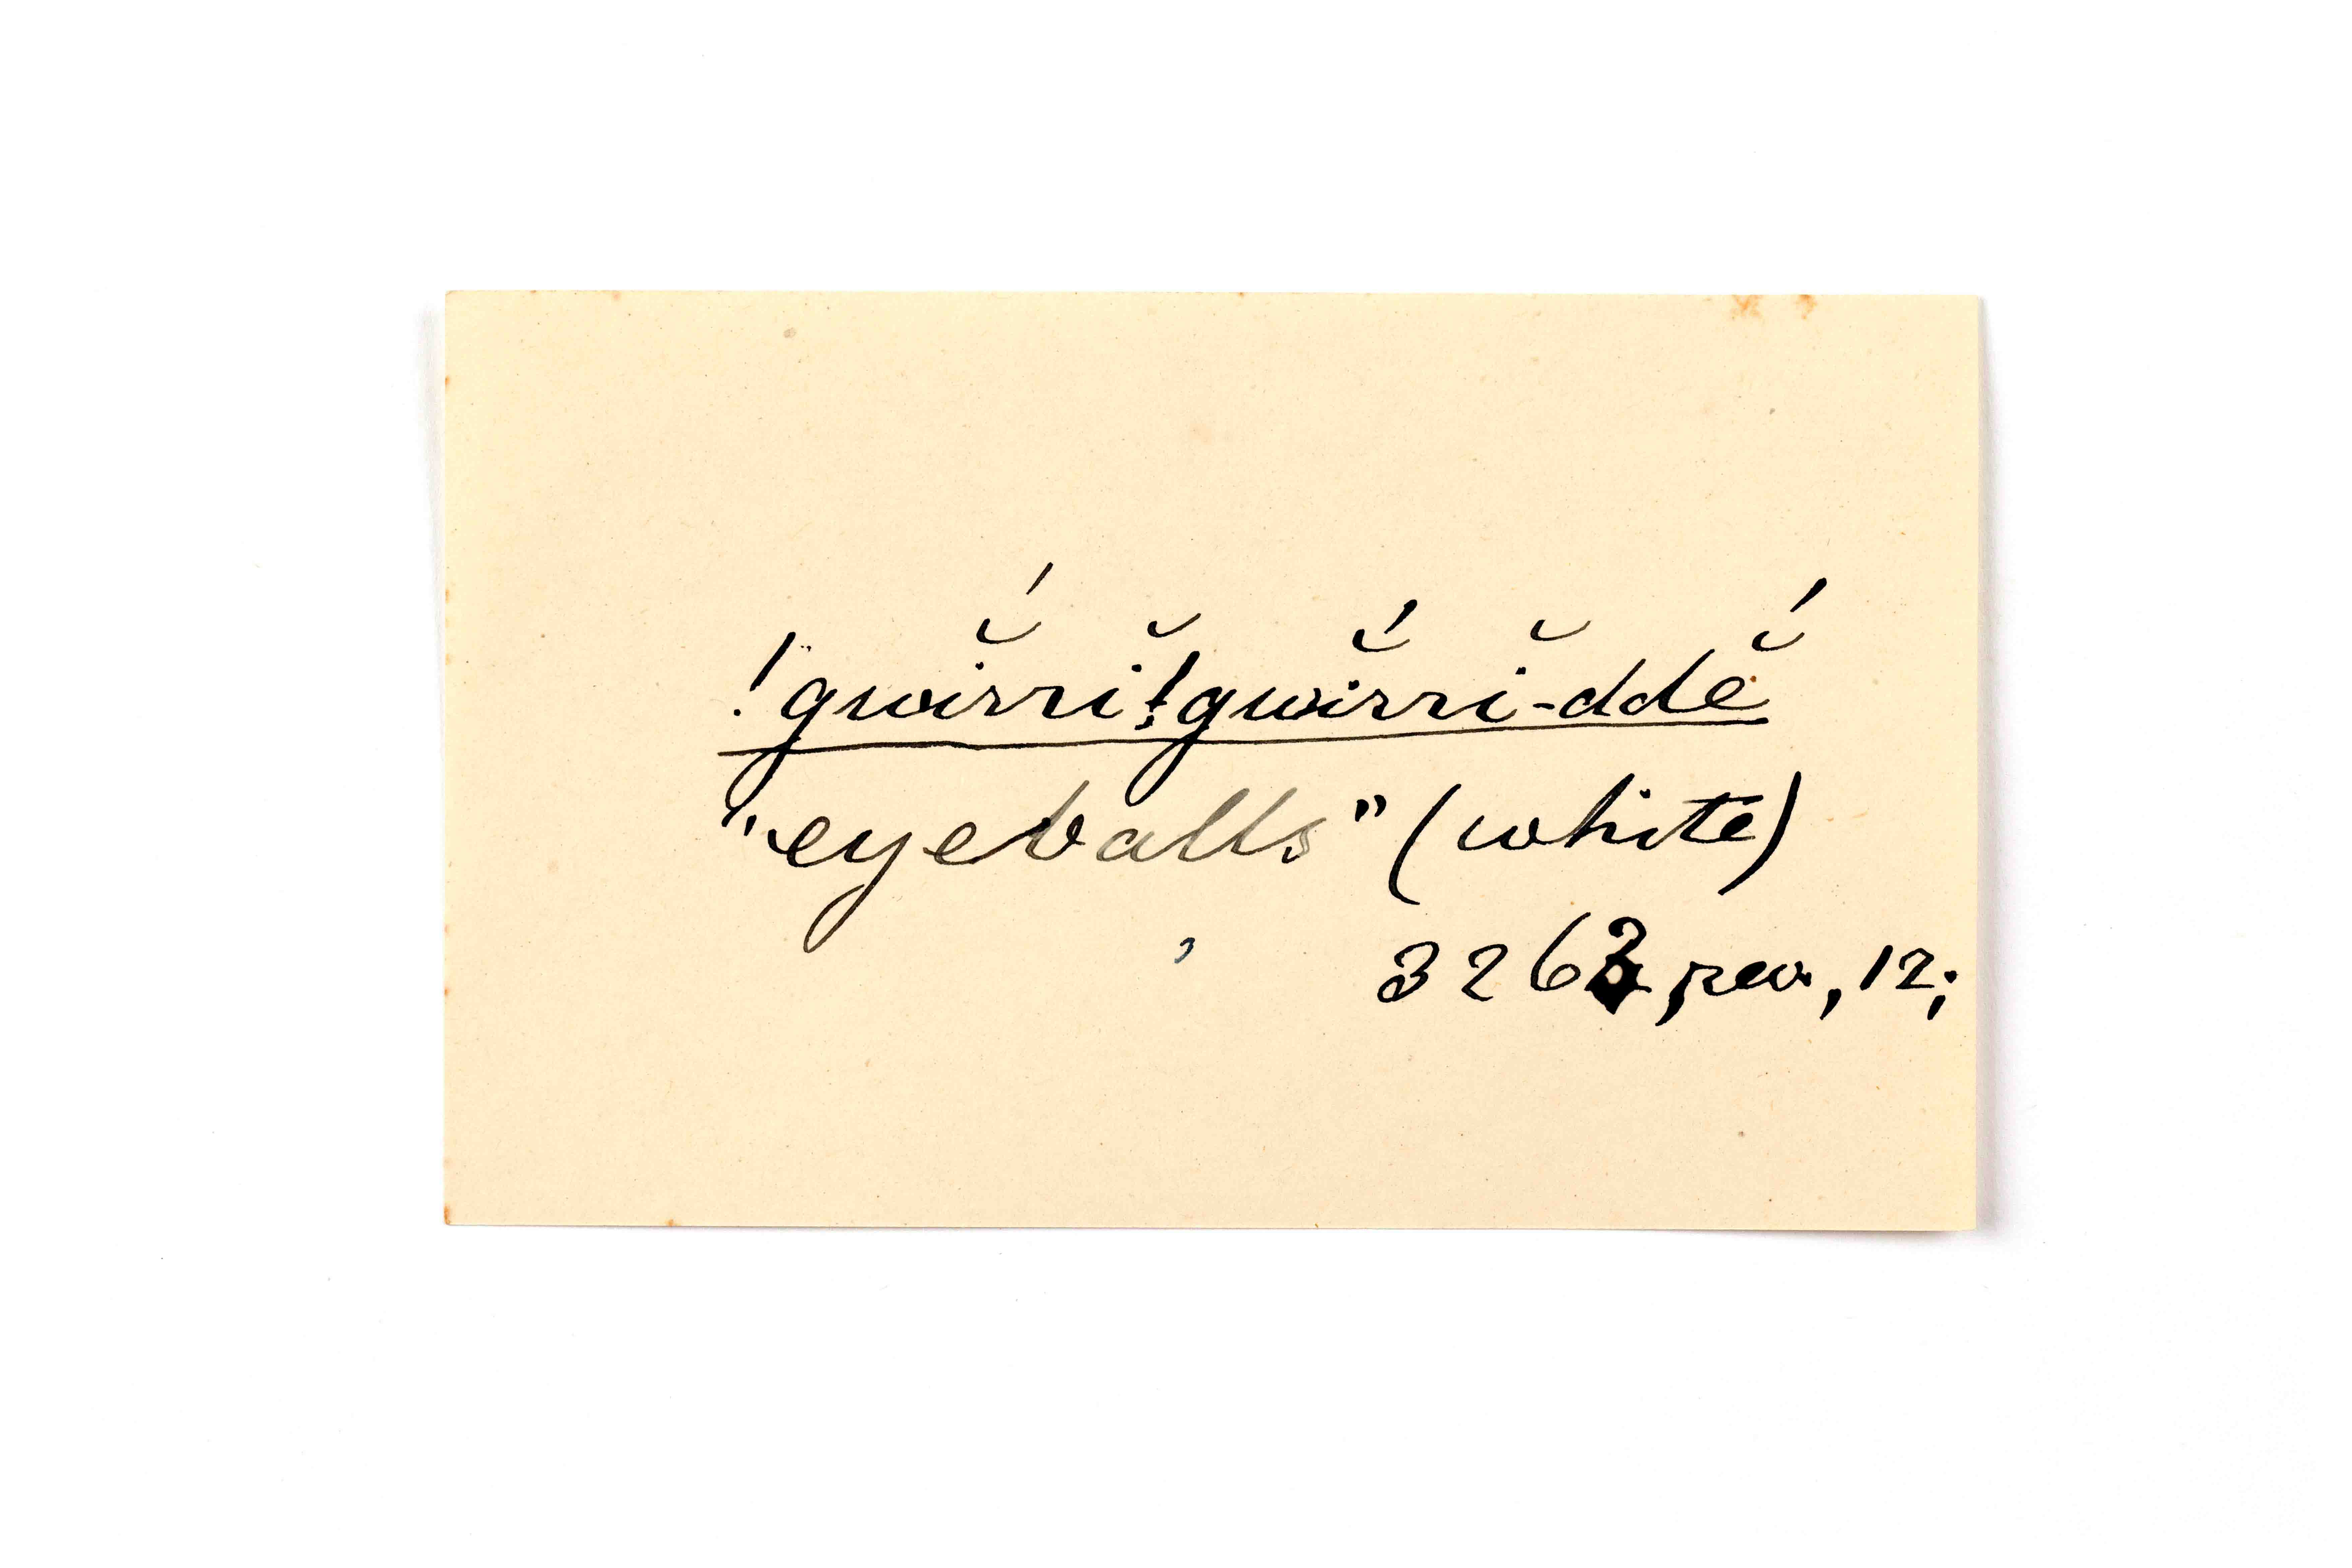 !gwĭ́rrĭ!gwĭ́rrĭ-ddĕ́
"eyeballs" (white)
3263, rev., 12;